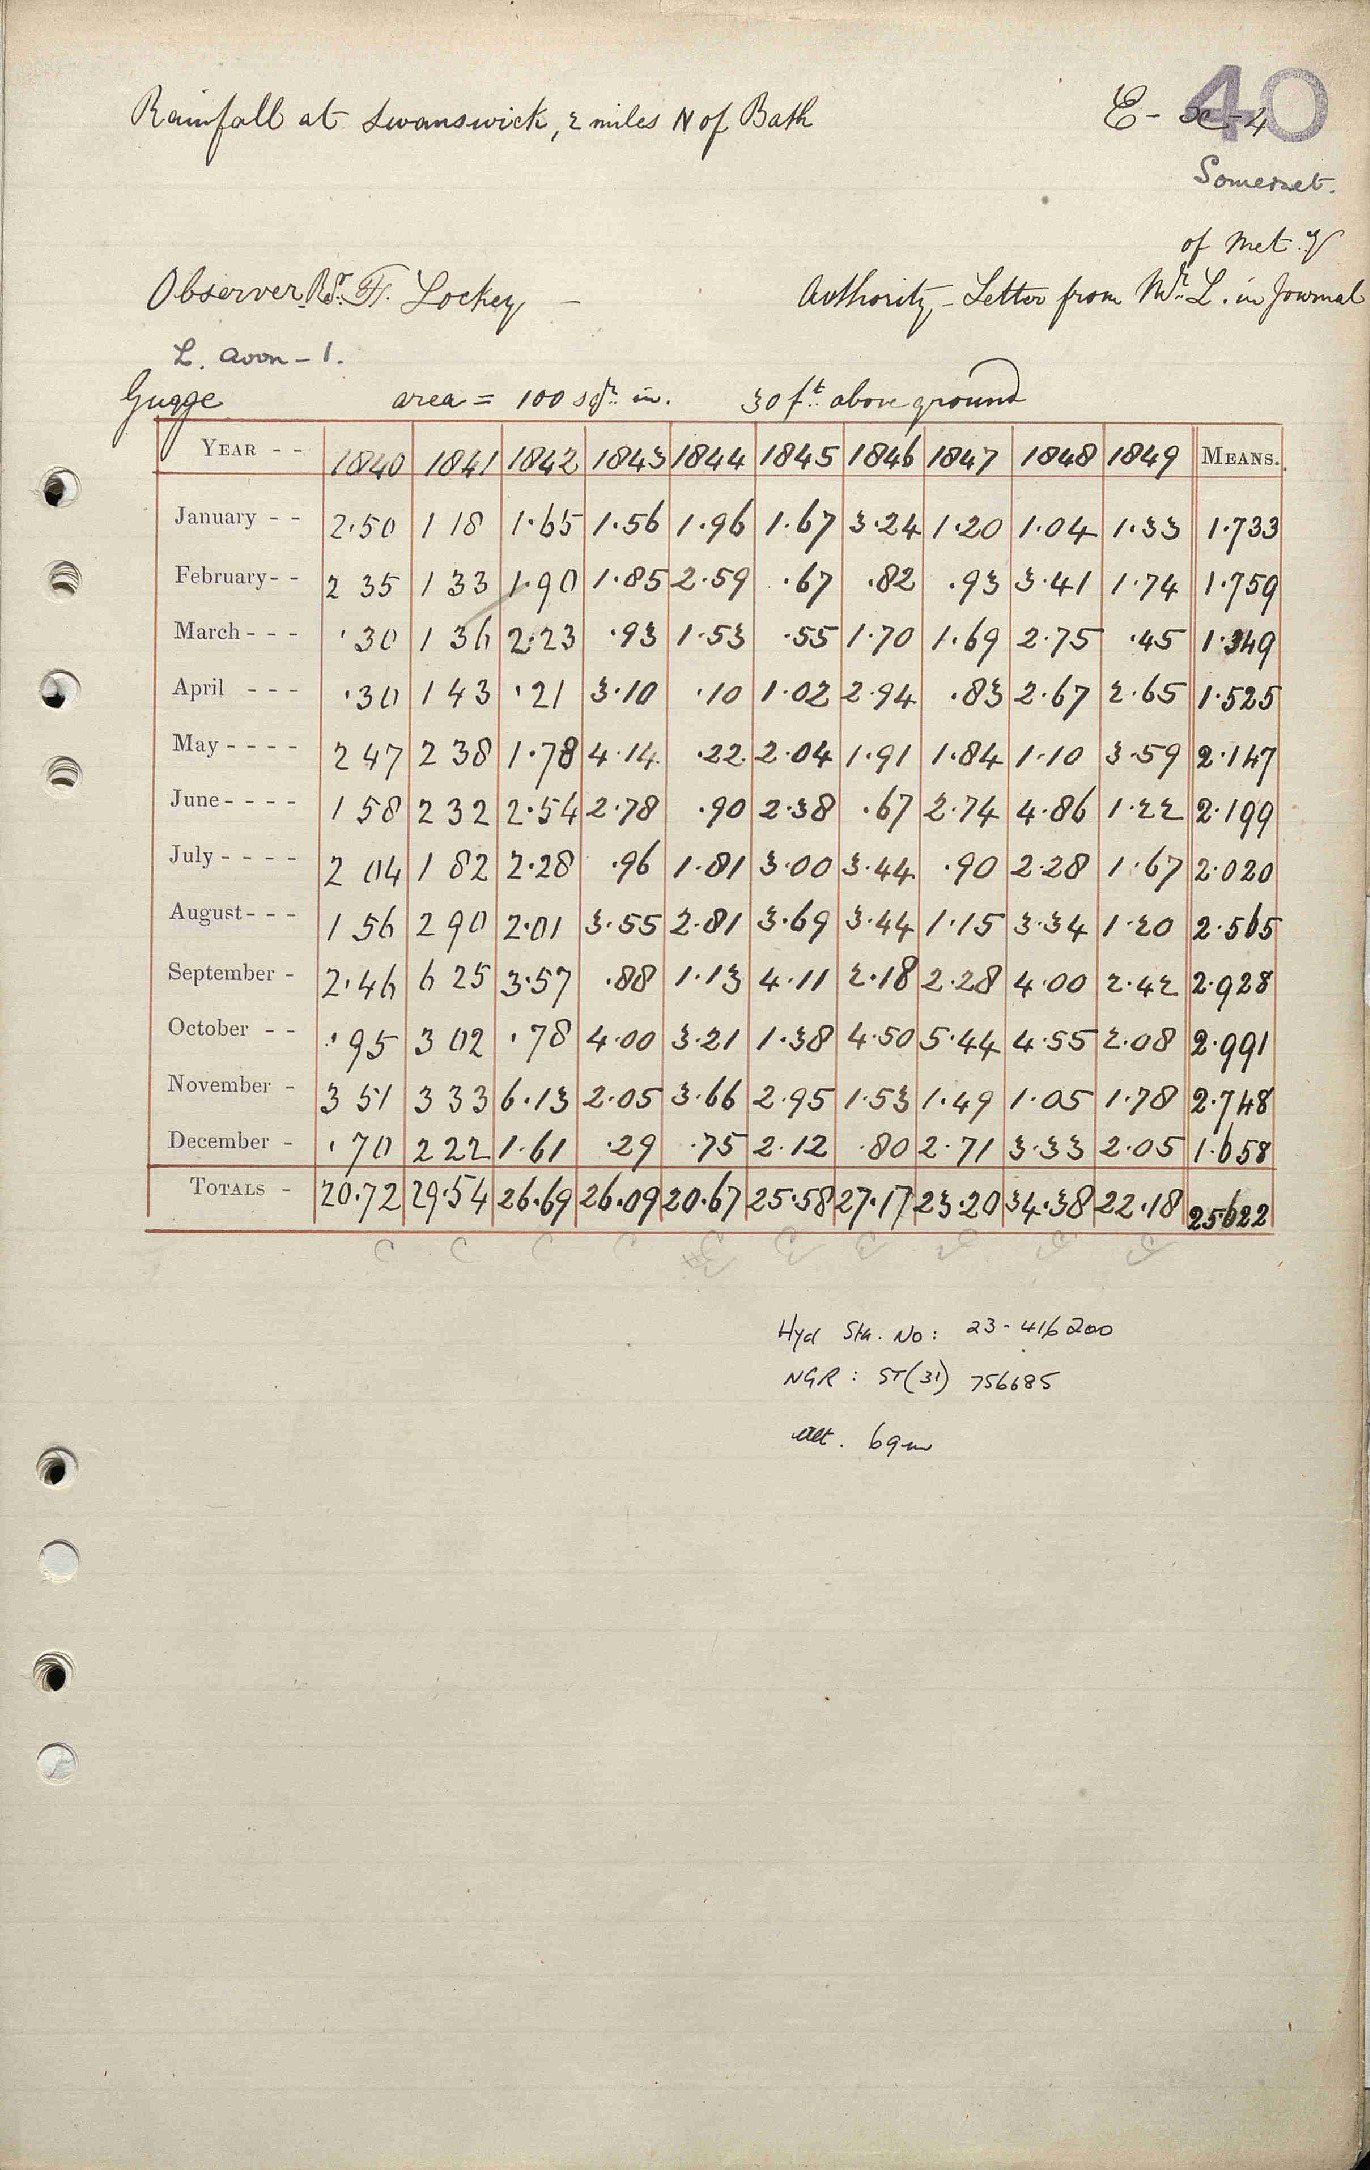 40
Rainfall at Swanswick, 2 miles N of Bath E-x-4
Somerset.
of Met. Sy
Observer Rd. F. Lockey Authority - Letter from Mr. L. in Journal
L. Avon - 1.
Guage area = 100 sqr. in. 30 ft. above ground
YEAR - - 1840 1841 1842 1843 1844 1845 1846 1847 1848 1849 MEANS.
January - - 2.50 1 18 1.65 1.56 1.96 1.67 3.24 1.20 1.04 1.33 1.733
February - - 2 35 1 33 1.90 1.85 2.59 .67 .82 .93 3.41 1.74 1.759
March - - - .30 1 36 2.23 .93 1.53 .55 1.70 1.69 2.75 .45 1.349
April - - - .30 1 43 .21 3.10 .10 1.02 2.94 .83 2.67 2.65 1.525
May - - - - 2 47 2 38 1.78 4.14 .22 2.04 1.91 1.84 1.10 3.59 2.147
June - - - - 1 58 2 32 2.54 2.78 .90 2.38 .67 2.74 4.86 1.22 2.199
July - - - - 2 04 1 82 2.28 .96 1.81 3.00 3.44 .90 2.28 1.67 2.020
August - - - 1 56 2 90 2.01 3.55 2.81 3.69 3.44 1.15 3.34 1.20 2.565
September - 2.46 6 25 3.57 .88 1.13 4.11 2.18 2.28 4.00 2.42 2.928
October - - .95 3 02 .78 4.00 3.21 1.38 4.50 5.44 4.55 2.08 2.991
November - 3 51 3 33 6.13 2.05 3.66 2.95 1.53 1.49 1.05 1.78 2.748
December - .70 2 22 1.61 .29 .75 2.12 .80 2.71 3.33 2.05 1.658
TOTALS - 20.72 29.54 26.69 26.09 20.67 25.58 27.17 23.20 34.38 22.18 25.622
Hyd Sta. No: 23-416200
NGR: ST(31) 756685
Alt. 69m